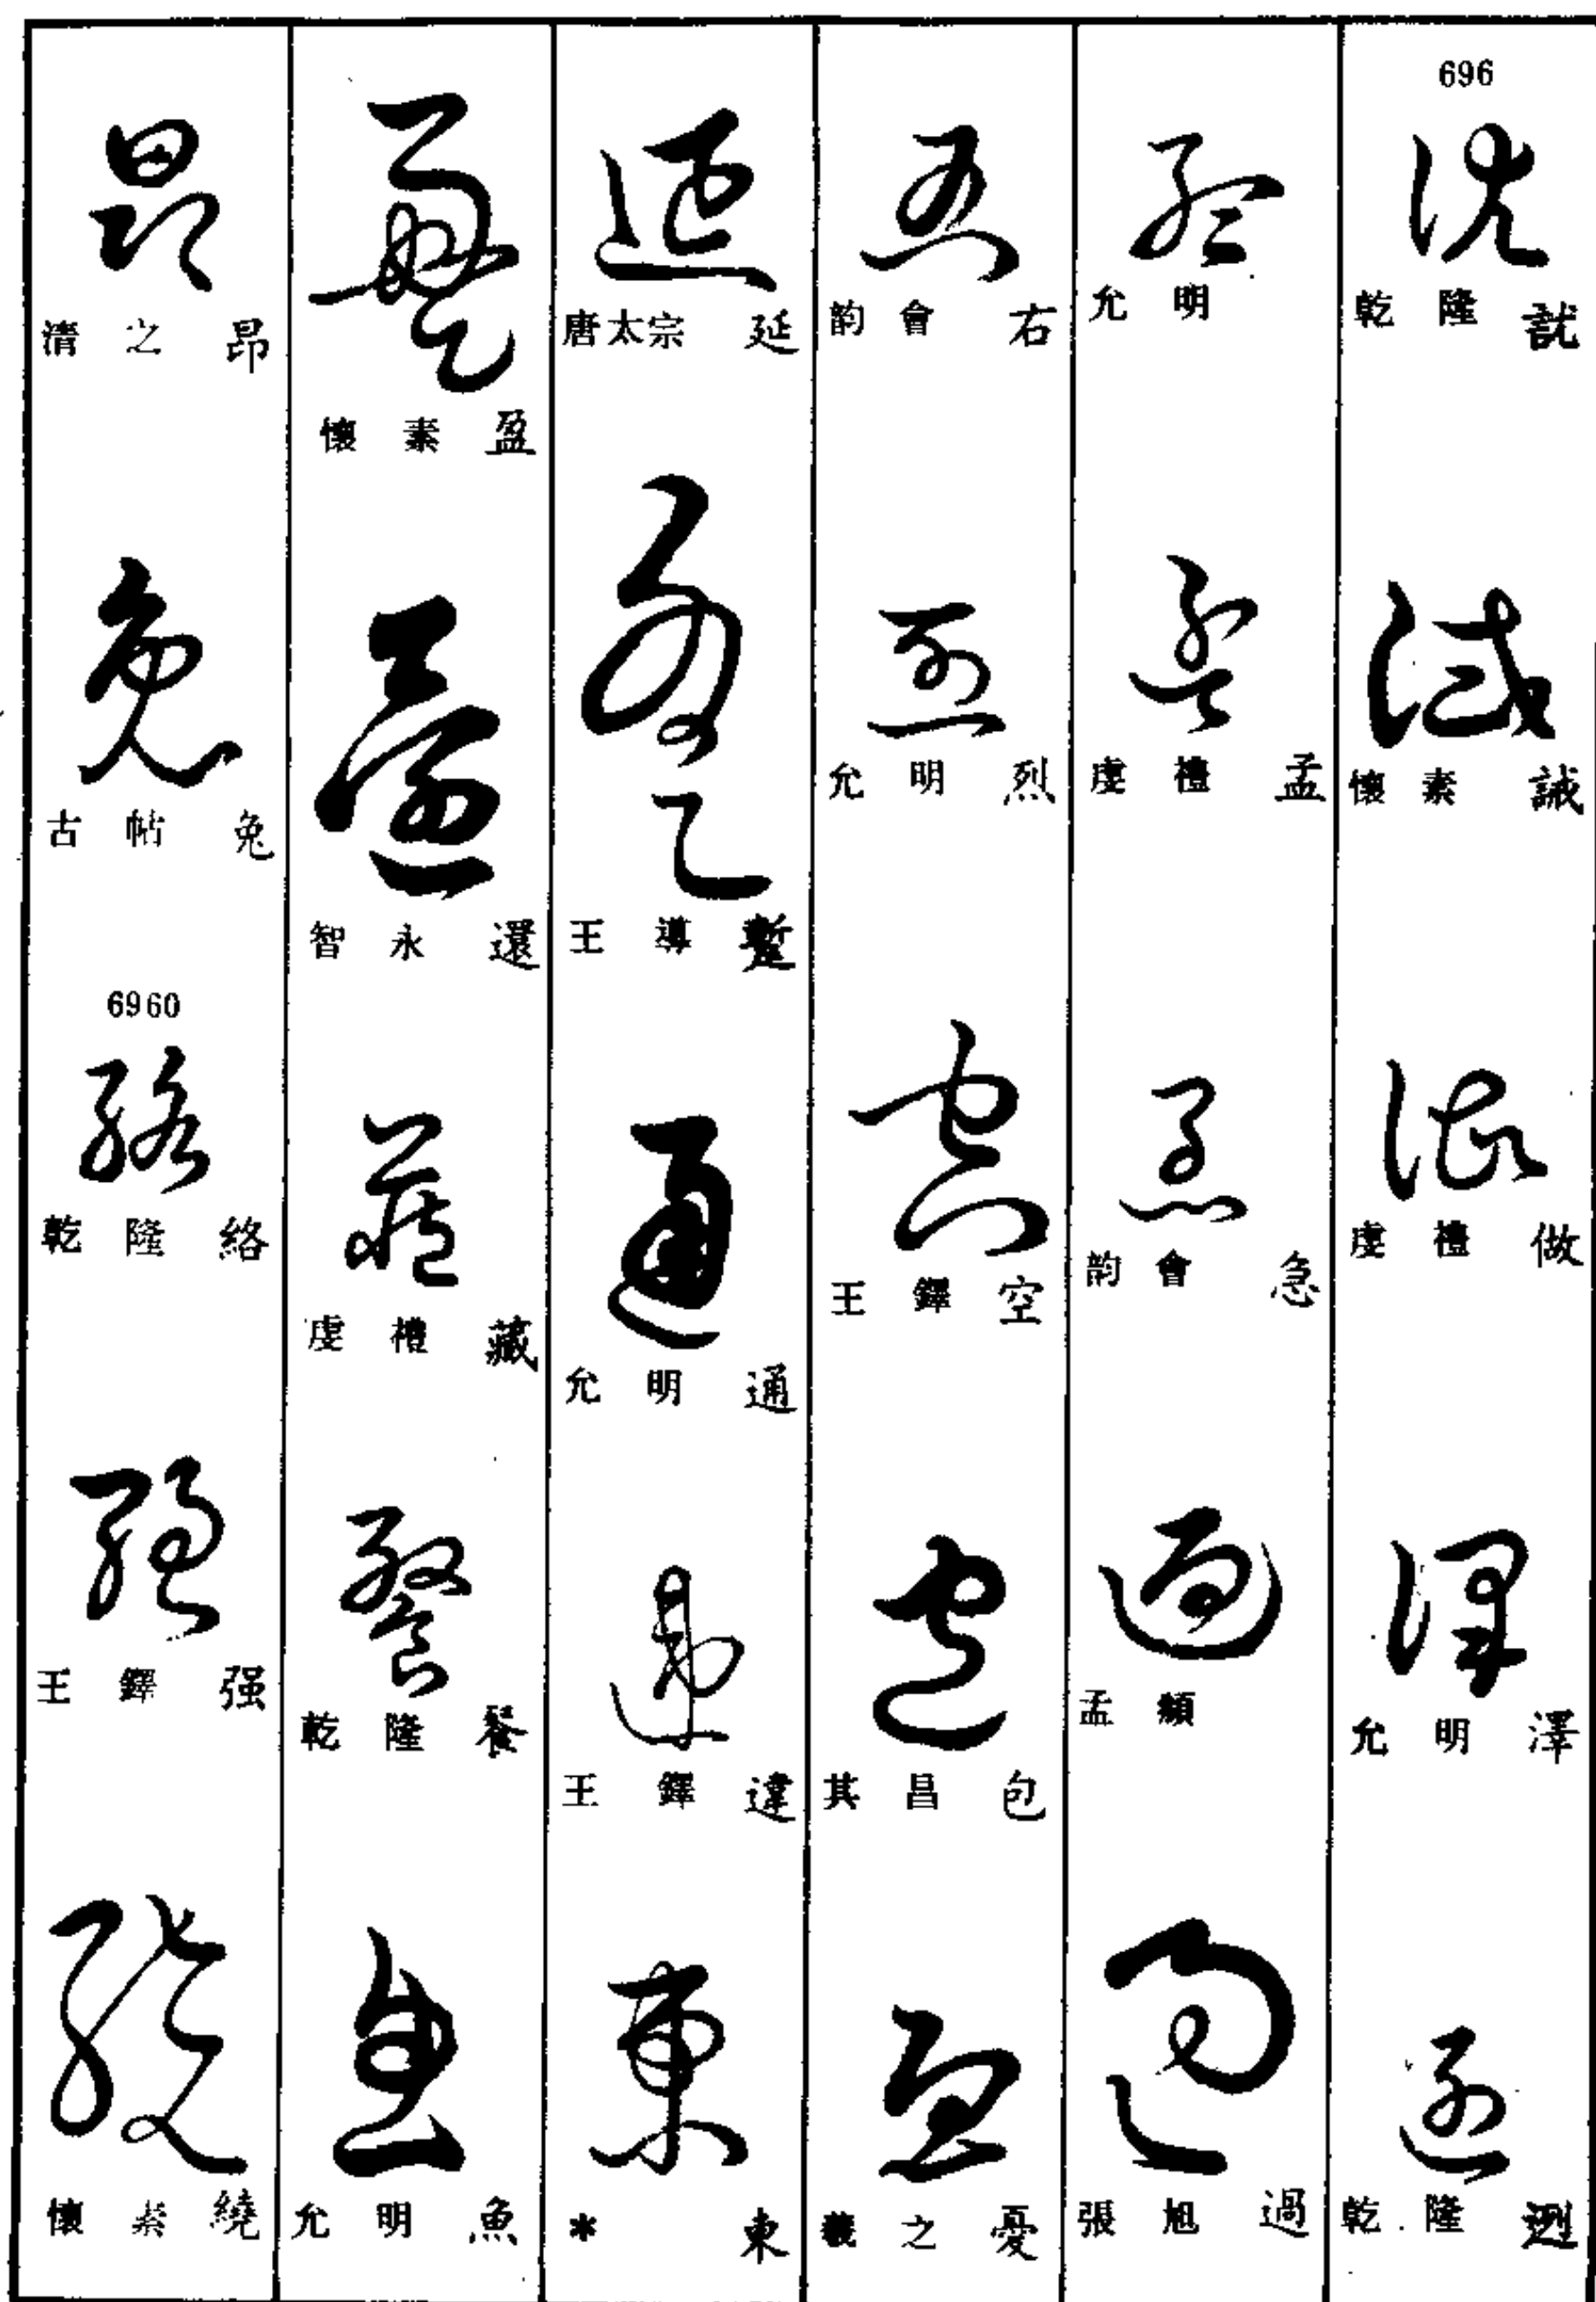 696
乾隆 訧
懷素 誡
虔禮 做
允明 澤
乾隆 迾
允明
虔禮 孟
韵會 急
孟頫
張旭 過
韵會 右
允明 烈
王鐸 空
其昌 包
羲之 憂
唐太宗 延
王導 蹔
允明 通
王鐸 違
* 東
懷素 盈
智永 還
虔禮 藏
乾隆 餐
允明 魚
清之 昂
古帖 兔
6960
乾隆 絡
王鐸 强
懷素 繞